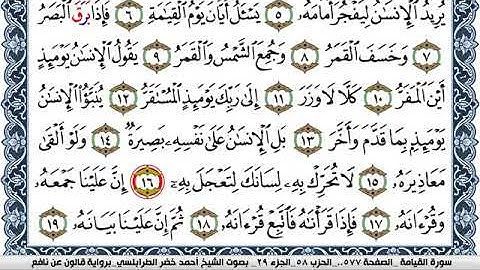 يُرِيدُ اُ۬لْإِنسَٰنُ لِيَفْجُرَ أَمَامَهُۥ ٥ يَسْـَٔلُ أَيَّانَ يَوْمُ اُ۬لْقِيَٰمَةِ ٦ فَإِذَا بَرَقَ اَ۬لْبَصَرُ
٧ وَخَسَفَ اَ۬لْقَمَرُ ٨ وَجُمِعَ اَ۬لشَّمْسُ وَالْقَمَرُ ٩ يَقُولُ اُ۬لْإِنسَٰنُ يَوْمَئِذٍ
أَيْنَ اَ۬لْمَفَرُّ ١٠ كَلَّا لَا وَزَرَ ١١ إِلَىٰ رَبِّكَ يَوْمَئِذٍ اِ۬لْمُسْتَقَرُّ ١٢ يُنَبَّؤُاْ اُ۬لْإِنسَٰنُ
يَوْمَئِذِۢ بِمَا قَدَّمَ وَأَخَّرَ ١٣ بَلِ اِ۬لْإِنسَٰنُ عَلَىٰ نَفْسِهِۦ بَصِيرَةٞ ١٤ وَلَوْ أَلْقَىٰ
مَعَاذِيرَهُۥ ١٥ لَا تُحَرِّكْ بِهِۦ لِسَانَكَ لِتَعْجَلَ بِهِۦ ١٦ إِنَّ عَلَيْنَا جَمْعَهُۥ
وَقُرْءَانَهُۥ ١٧ فَإِذَا قَرَأْنَٰهُ فَاتَّبِعْ قُرْءَانَهُۥ ١٨ ثُمَّ إِنَّ عَلَيْنَا بَيَانَهُۥ ١٩
سورة القيامة _ الصفحة ٥٧٧.. الحزب ٥٨_الجزء ٢٩ _ بصوت الشيخ أحمد خضر الطرابلسي_برواية قالون عن نافع